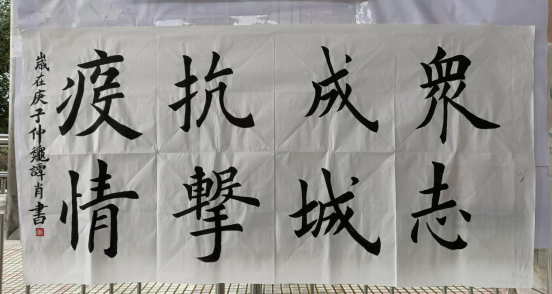 衆志
成城
抗擊
疫情
歲在庚子仲龝譚肖書